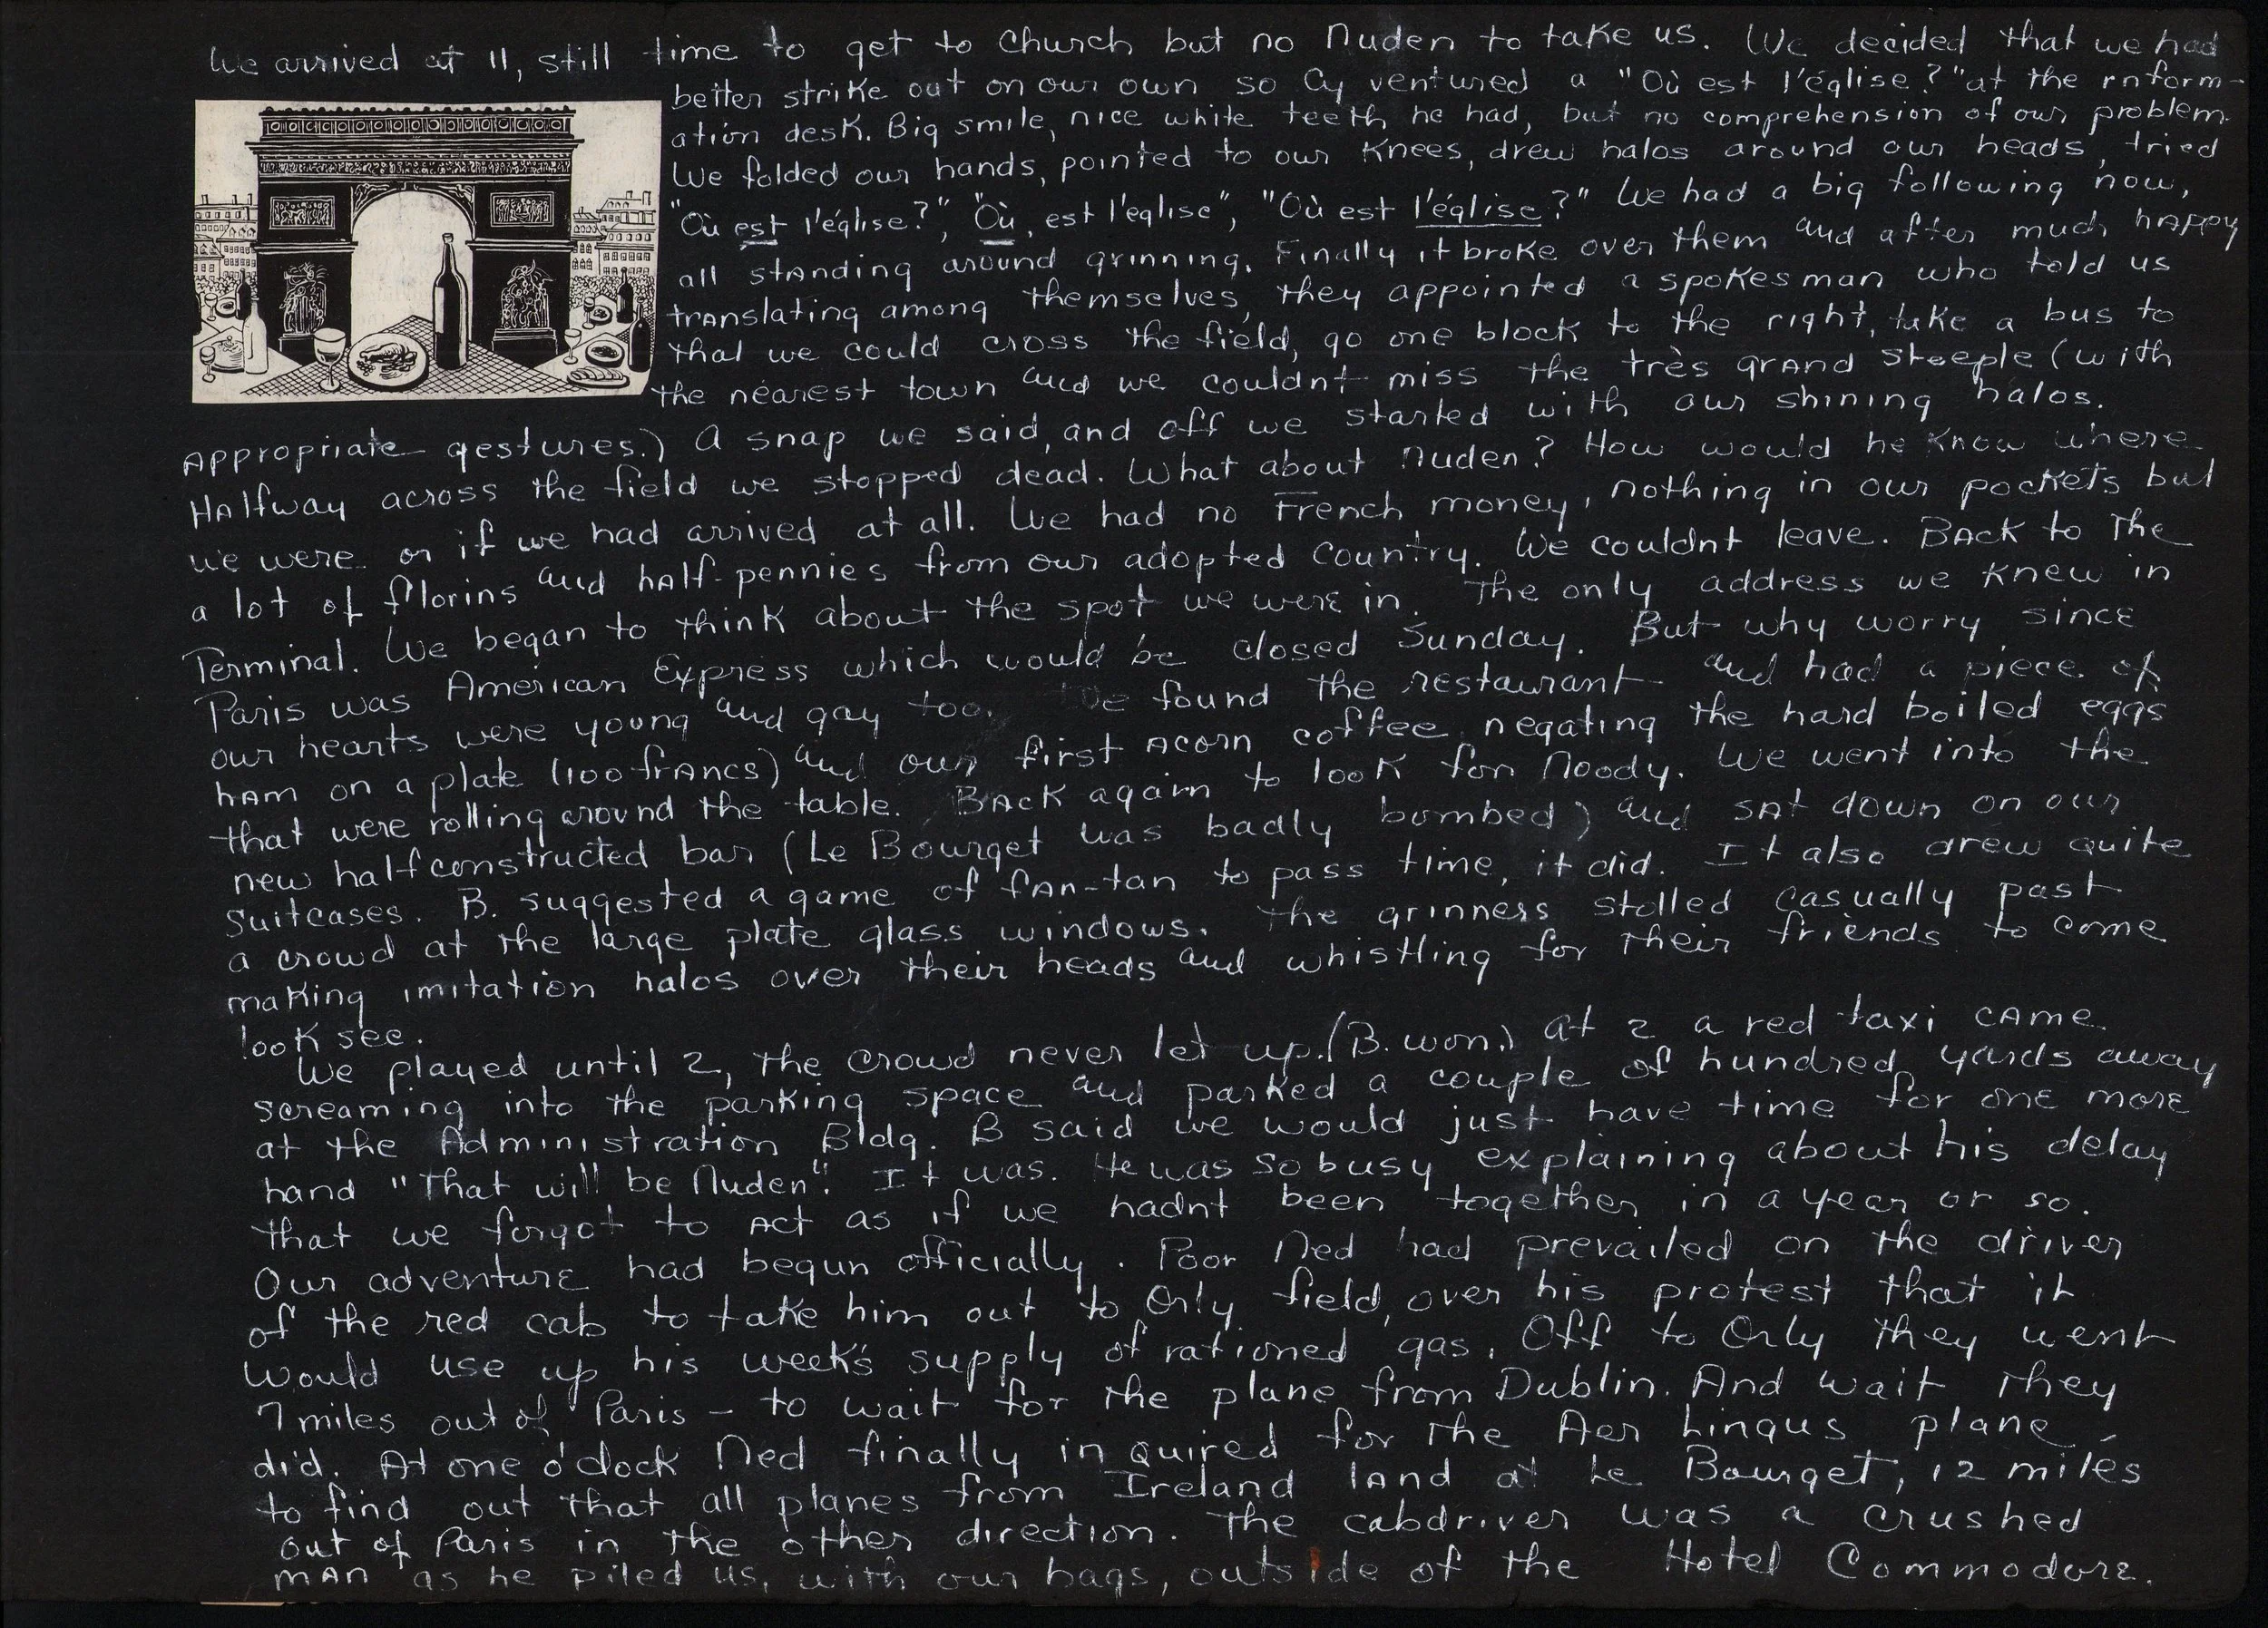 We arrived at 11, still time to get to church but no Nuden to take us. We decided that we had
better strike out on our own so Cy ventured a "Où est l'église?" at the inform-
ation desk. Big smile, nice white teeth he had, but no comprehension of our problem.
We folded our hands, pointed to our knees, drew halos around our heads, tried
"Où est l'église?", "Où, est l'eglise", "Où est l'église?" We had a big following now,
all standing around grinning. Finally it broke over them and after much happy
translating among themselves, they appointed a spokesman who told us
that we could cross the field, go one block to the right, take a bus to
the nearest town and we couldnt miss the très grand steeple (with
appropriate gestures.) A snap we said, and off we started with our shining halos.
Halfway across the field we stopped dead. What about Nuden? How would he know where
we were or if we had arrived at all. We had no French money, nothing in our pockets but
a lot of florins and half-pennies from our adopted country. We couldnt leave. Back to the
Terminal. We began to think about the spot we were in. The only address we knew in
Paris was American Express which would be closed Sunday. But why worry since
our hearts were young and gay too. We found the restaurant and had a piece of
ham on a plate (100 francs) and our first acorn coffee negating the hard boiled eggs
that were rolling around the table. Back again to look for Noody. We went into the
new half constructed bar (Le Bourget was badly bombed) and sat down on our
suitcases. B. suggested a game of fan-tan to pass time, it did. It also drew quite
a crowd at the large plate glass windows. The grinners stolled casually past
making imitation halos over their heads and whistling for their friends to come
look see.
We played until 2, the crowd never let up. (B. won.) At 2 a red taxi came
screaming into the parking space and parked a couple of hundred yards away
at the Administration Bldg. B said we would just have time for one more
hand "That will be Nuden"! It was. He was so busy explaining about his delay
that we forgot to act as if we hadnt been together in a year or so.
Our adventure had begun officially. Poor Ned had prevailed on the driver
of the red cab to take him out to Orly field, over his protest that it
would use up his week's supply of rationed gas. Off to Orly they went
7 miles out of Paris - to wait for the plane from Dublin. And wait they
did. At one o'clock Ned finally inquired for the Aer Lingus plane,
to find out that all planes from Ireland land at Le Bourget, 12 miles
out of Paris in the other direction. The cabdriver was a crushed
man as he piled us, with our bags, outside of the Hotel Commodore.